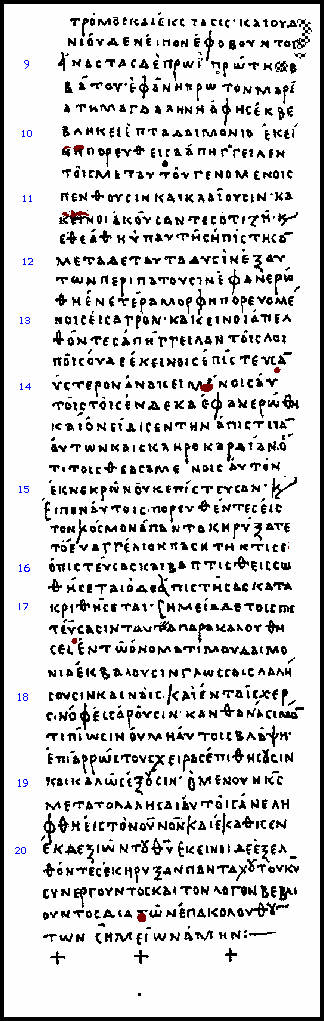 ΤΡΟΜΟΣ ΚΑΙ ΕΚΣΤΑΣΙΣ· ΚΑΙ ΟΥΔΕ
ΝΙ ΟΥΔΕΝ ΕΙΠΟΝ ΕΦΟΒΟΥΝΤΟ
9 ΑΝΑΣΤΑΣ ΔΕ ΠΡΩΙ ΠΡΩΤΗ ΣΑΒ
ΒΑΤΟΥ· ΕΦΑΝΗ ΠΡΩΤΟΝ ΜΑΡΙ
Α ΤΗ ΜΑΓΔΑΛΗΝΗ ΑΦ ΗΣ ΕΚΒΕ
10 ΒΛΗΚΕΙ ΕΠΤΑ ΔΑΙΜΟΝΙΑ ΕΚΕΙ
ΝΗ ΠΟΡΕΥΘΕΙΣΑ ΑΠΗΓΓΕΙΛΕΝ
ΤΟΙΣ ΜΕΤ ΑΥΤΟΥ ΓΕΝΟΜΕΝΟΙΣ
11 ΠΕΝΘΟΥΣΙΝ ΚΑΙ ΚΛΑΙΟΥΣΙΝ· ΚΑ
ΚΕΙΝΟΙ ΑΚΟΥΣΑΝΤΕΣ ΟΤΙ ΖΗ· Κ
ΕΘΕΑΘΗ ΥΠ ΑΥΤΗΣ ΗΠΙΣΤΗΣΑ̅
12 ΜΕΤΑ ΔΕ ΤΑΥΤΑ ΔΥΣΙΝ ΕΞ ΑΥ
ΤΩΝ ΠΕΡΙΠΑΤΟΥΣΙΝ ΕΦΑΝΕΡΩ
ΘΗ ΕΝ ΕΤΕΡΑ ΜΟΡΦΗ ΠΟΡΕΥΟΜΕ
13 ΝΟΙΣ ΕΙΣ ΑΓΡΟΝ· ΚΑΚΕΙΝΟΙ ΑΠΕΛ
ΘΟΝΤΕΣ ΑΠΗΓΓΕΙΛΑΝ ΤΟΙΣ ΛΟΙ
ΠΟΙΣ ΟΥΔΕ ΕΚΕΙΝΟΙΣ ΕΠΙΣΤΕΥΣΑ̅
14 ΥΣΤΕΡΟΝ ΑΝΑΚΕΙΜΕΝΟΙΣ ΑΥ
ΤΟΙΣ ΤΟΙΣ ΕΝΔΕΚΑ ΕΦΑΝΕΡΩΘΗ
ΚΑΙ ΟΝΕΙΔΙΣΕΝ ΤΗΝ ΑΠΙΣΤΙΑ̅
ΑΥΤΩΝ ΚΑΙ ΣΚΛΗΡΟΚΑΡΔΙΑΝ Ο
ΤΙ ΤΟΙΣ ΘΕΑΣΑΜΕΝΟΙΣ ΑΥΤΟΝ
15 ΕΚ ΝΕΚΡΩΝ ΟΥΚ ΕΠΙΣΤΕΥΣΑΝ· Κ
ΕΙΠΕΝ ΑΥΤΟΙΣ· ΠΟΡΕΥΘΕΝΤΕΣ ΕΙΣ
ΤΟΝ ΚΟΣΜΟΝ ΑΠΑΝΤΑ ΚΗΡΥΞΑΤΕ
16 ΤΟ ΕΥΑΓΓΕΛΙΟΝ ΠΑΣΗ ΤΗ ΚΤΙΣΕΙ
Ο ΠΙΣΤΕΥΣΑΣ ΚΑΙ ΒΑΠΤΙΣΘΕΙΣ ΣΩ
ΘΗΣΕΤΑΙ Ο ΔΕ ΑΠΙΣΤΗΣΑΣ ΚΑΤΑ
17 ΚΡΙΘΗΣΕΤΑΙ· ΣΗΜΕΙΑ ΔΕ ΤΟΙΣ ΠΙΣ
ΤΕΥΣΑΣΙΝ ΤΑΥΤΑ ΠΑΡΑΚΑΛΟΥΘΗ
ΣΕΙ ΕΝ ΤΩ ΟΝΟΜΑΤΙ ΜΟΥ ΔΑΙΜΟ
ΝΙΑ ΕΚΒΑΛΟΥΣΙΝ ΓΛΩΣΣΑΙΣ ΛΑΛΗ
18 ΣΟΥΣΙΝ ΚΑΙΝΑΙΣ· ΚΑΙ ΕΝ ΤΑΙΣ ΧΕΡ
ΣΙΝ ΟΦΕΙΣ ΑΡΟΥΣΙΝ· ΚΑΝ ΘΑΝΑΣΙΜΟ̅
ΤΙ ΠΙΩΣΙΝ ΟΥ ΜΗ ΑΥΤΟΥΣ ΒΛΑΨΗ·
ΕΠΙ ΑΡΡΩΣΤΟΥΣ ΧΕΙΡΑΣ ΕΠΙΘΗΣΟΥΣΙΝ
19 ΚΑΙ ΚΑΛΩΣ ΕΞΟΥΣΙΝ· Ο ΜΕΝ ΟΥΝ Κ̅Σ̅
ΜΕΤΑ ΤΟ ΛΑΛΗΣΑΙ ΑΥΤΟΙΣ ΑΝΕΛΗ
ΦΘΗ ΕΙΣ ΤΟΝ ΟΥΝΟΝ ΚΑΙ ΕΚΑΘΙΣΕΝ
20 ΕΚ ΔΕΞΙΩΝ ΤΟΥ Θ̅Υ̅ ΕΚΕΙΝΟΙ ΔΕ ΕΞΕΛ
ΘΟΝΤΕΣ ΕΚΗΡΥΞΑΝ ΠΑΝΤΑΧΟΥ ΤΟΥ Κ̅Υ̅
ΣΥΝΕΡΓΟΥΝΤΟΣ ΚΑΙ ΤΟΝ ΛΟΓΟΝ ΒΕΒΑΙ
ΟΥΝΤΟΣ ΔΙΑ ΤΩΝ ΕΠΑΚΟΛΟΥΘΟΥ̅
ΤΩΝ ΣΗΜΕΙΩΝ ΑΜΗΝ:—
+ + +